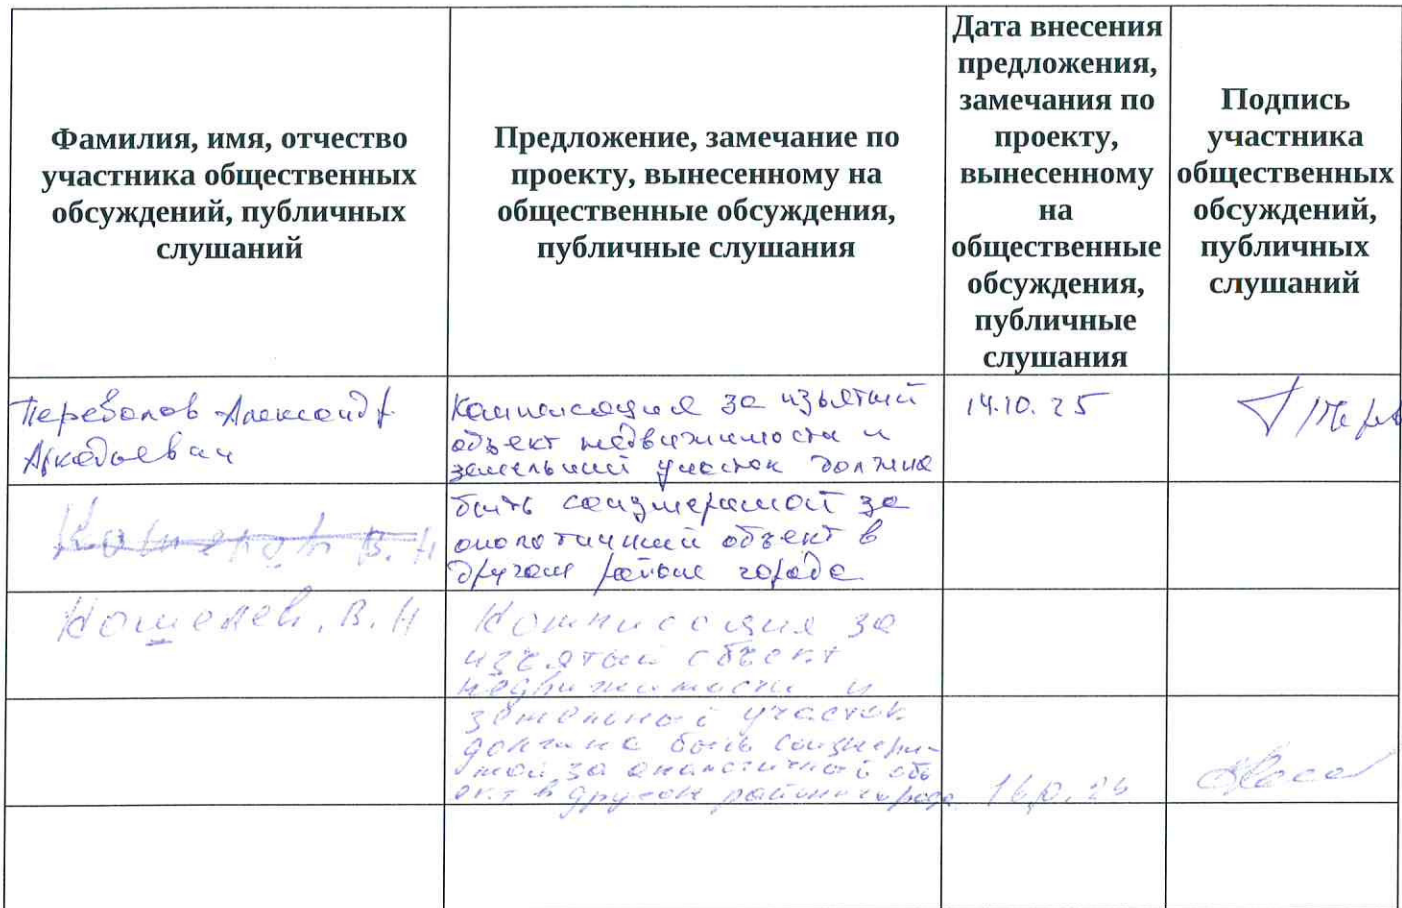 Фамилия, имя, отчество
участника общественных
обсуждений, публичных
слушаний
Предложение, замечание по
проекту, вынесенному на
общественные обсуждения,
публичные слушания
Дата внесения
предложения,
замечания по
проекту,
вынесенному
на
общественные
обсуждения,
публичные
слушания
Подпись
участника
общественных
обсуждений,
публичных
слушаний
Перевалов Александр
Аркадьевич
Компенсация за изъятый
объект недвижимости и
земельный участок должна
14.10.25
быть соизмеримой за
аналогичный объект в
другом районе города
В. Н
Кошелев. В. Н
за
изъятый объект
недвижимости и
земельный участок
должна быть соизмери-
мой за аналогичный объ
ект в другом районе города